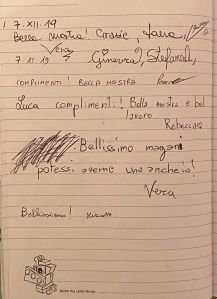 7.XII.19
Bella mostra! Grazie, Luna,
Vera
7.12.19 Ginevra, Stefano,
COMPLIMENTI! BELLA MOSTRA
Luca complimenti! Bella mostra e bel
lavoro
Rebecca
Bellissimo magari
potessi averne uno anch'io!
Vera
Bellissimo!
©2015 The LEGO Group